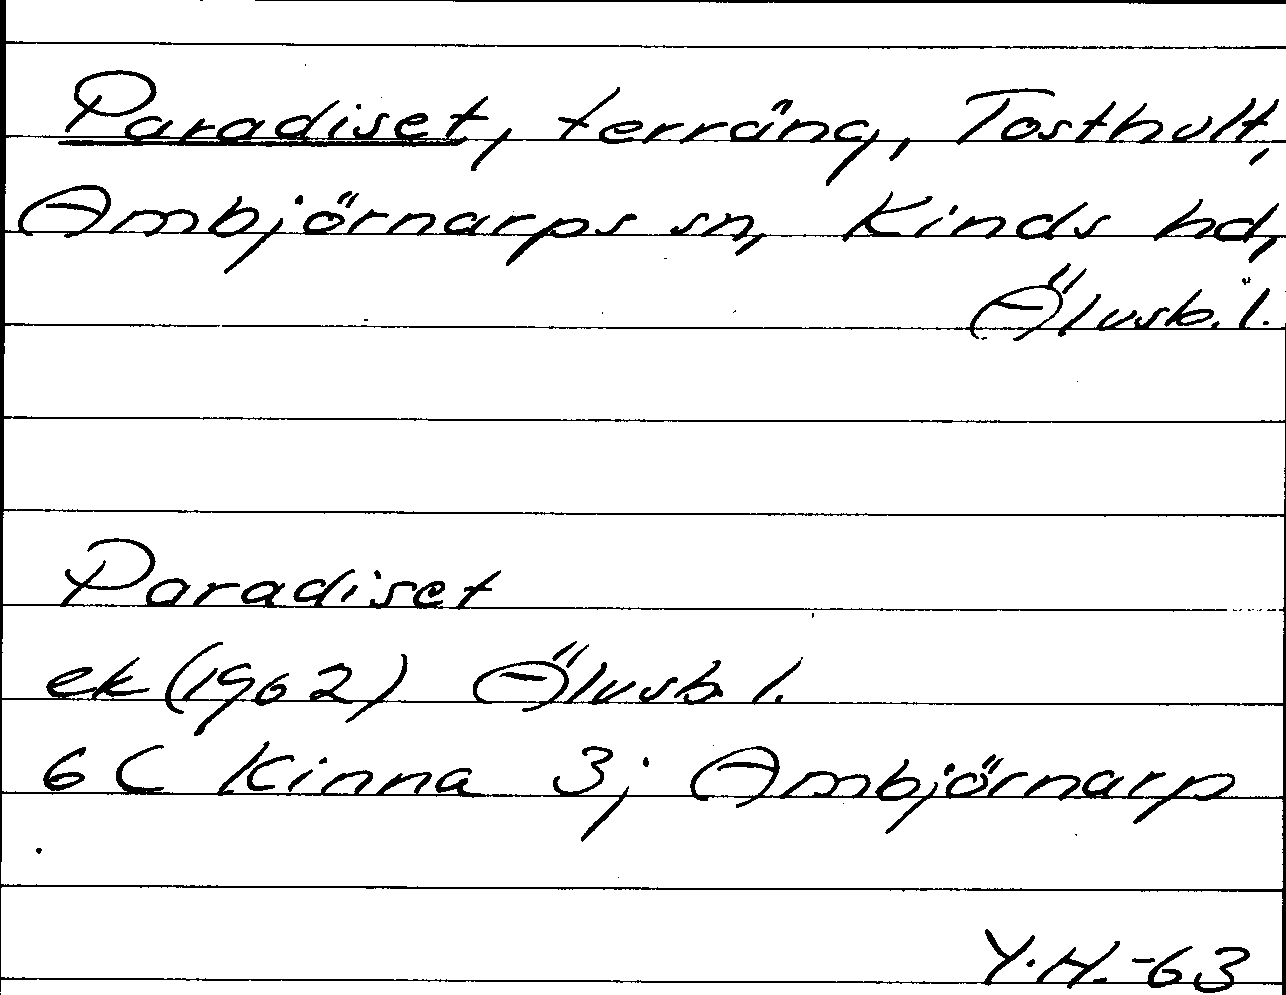 Paradiset, terräng, Tosthult,
Ambjörnarps sn, Kinds hd,
Älvsb. l.
Paradiset
ek (1962) Älvsb. l.
6 C Kinna 3j Ambjörnarp
Y.H.-63